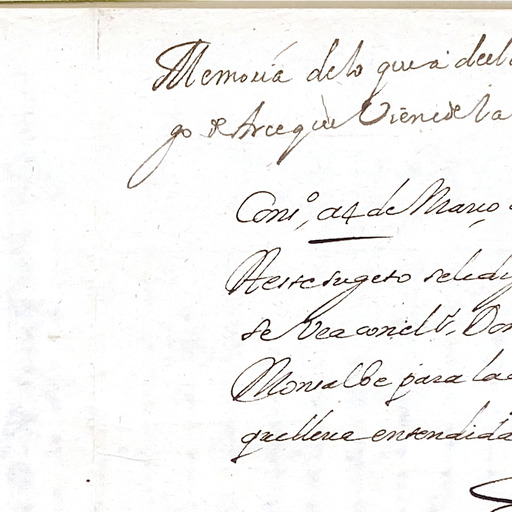 Memoria de lo que a de el
go de Arceque Viene de la
Cons.º a 4 de Março
A este sugeto se le di
se Vea con el S.r Don
Monsalbe para la
que lleua entendida